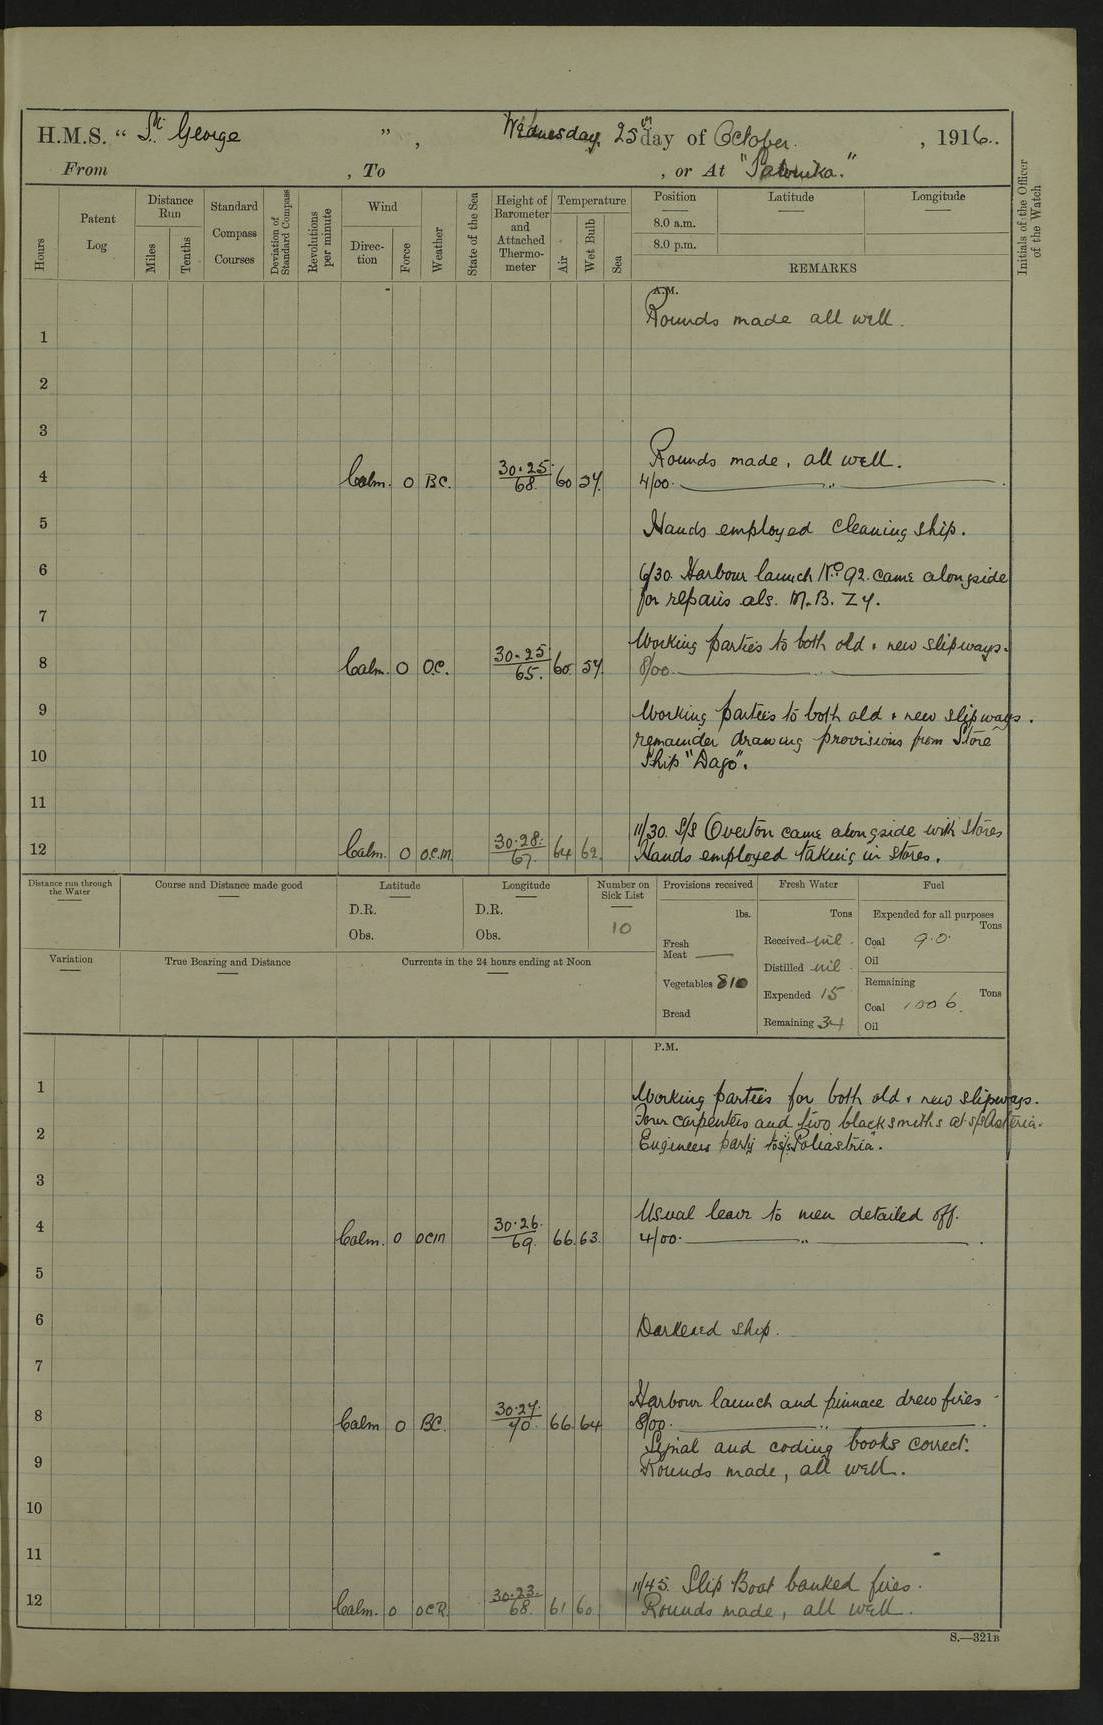 H.M.S. “ St. George ” , Wednesday, 25th day of October. , 1916.
From , To , or At "Salonika."
Hours
Patent Log
Distance Run
Miles
Tenths
Standard Compass Courses
Deviation of Standard Compass
Revolutions per minute
Wind
Direction
Force
Weather
State of the Sea
Height of Barometer and Attached Thermometer
Temperature
Air
Wet Bulb
Sea
Position
Latitude
Longitude
8.0 a.m.
8.0 p.m.
REMARKS
Initials of the Officer of the Watch
A.M.
Rounds made all well.
1
2
3
Rounds made, all well.
4 Calm. 0 BC. 30.25 68. 60 57. 4/00. ——— " ——— .
5 Hands employed cleaning ship.
6 6/30. Harbour launch No. 92. came alongside
for repairs als. M.B. 27.
7
Working parties to both old & new slipways.
8 Calm. 0 O.C. 30.25 65. 60. 57. 8/00. ——— " ———
9 Working parties to both old & new slipways.
remainder drawing provisions from Store
10 Ship "Dago".
11
11/30. S/S Overton came alongside with Stores
12 Calm. 0 O.C.M. 30.28. 67. 64 62. Hands employed taking in stores.
Distance run through the Water
Course and Distance made good
Latitude
D.R.
Obs.
Longitude
D.R.
Obs.
Number on Sick List
10
Provisions received
lbs.
Fresh Meat ——
Vegetables 810
Bread
Fresh Water
Tons
Received nil.
Distilled nil.
Expended 15
Remaining 34
Fuel
Expended for all purposes
Tons
Coal 9.0.
Oil
Remaining
Tons
Coal 1006.
Oil
Variation
True Bearing and Distance
Currents in the 24 hours ending at Noon
P.M.
1 Working parties for both old & new slipways.
Four carpenters and two blacksmiths at S/S
2 Engineers party to S/S
3
Usual leave to men detailed off.
4 Calm. 0 OCM 30.26. 69. 66. 63. 4/00. ——— " ——— .
5
6 Darkened ship.
7
Harbour launch and pinnace drew fires.
8 Calm 0 BC. 30.27. 70. 66 64 8/00. ——— " ——— .
Signal and coding books correct.
9 Rounds made, all well.
10
11
11/45. Slip Boat banked fires.
12 Calm. 0 OCR. 30.23. 68. 61 60 Rounds made, all well.
S.—321B